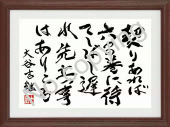 契りあれば
六の巷に待
てしばし遅
れ先立つ事
はありとも
大谷吉継